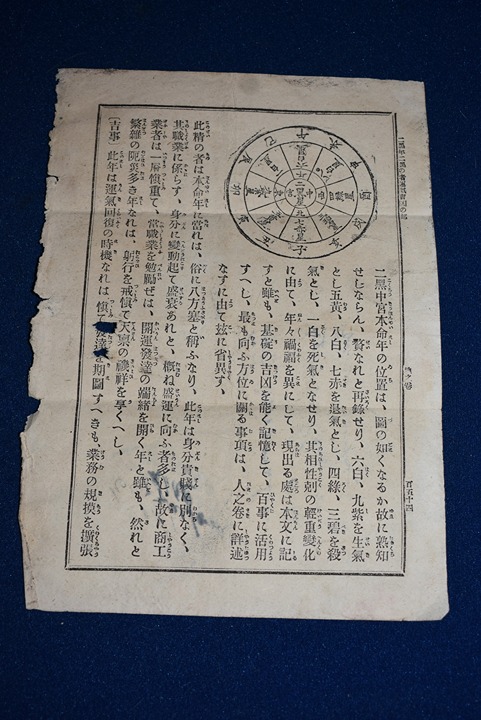 百五十四
二黑中宮本命年の位置は、圖の如くなるか故に熟知
せしならん、贅なれと再錄せり、六白、九紫を生氣
とし五黃、八白、七赤を退氣とし、四綠、三碧を殺
氣とし、一白を死氣となせり、其相性剋の輕重變化
に由て、年々禍福を異にして、現出る處は本文に記
すと雖も、基礎の吉凶を能く記憶して、百事に活用
すへし、最も向ふ方位に關る事項は、人之卷に詳述
なすに由て玆に省畧す、
此精の者は本命年に當れは、俗に八方塞と稱ふなり、此年は身分貴賤に別なく、
其職業に係らす、身分に變動起て盛宴あれと、概ね盛運に向ふ者多し、故に商工
業者は一層愼重て、當職業を勉勵せは、開運發達の端緒を開く年と雖も、然れと
繁雜の災多き年なれは、躬行を戒愼て天禀の禎祥を享くへし、
〔吉事〕 此年は運氣回復の時機なれは、愼て發達を期圖すへきも、業務の規摸を擴張